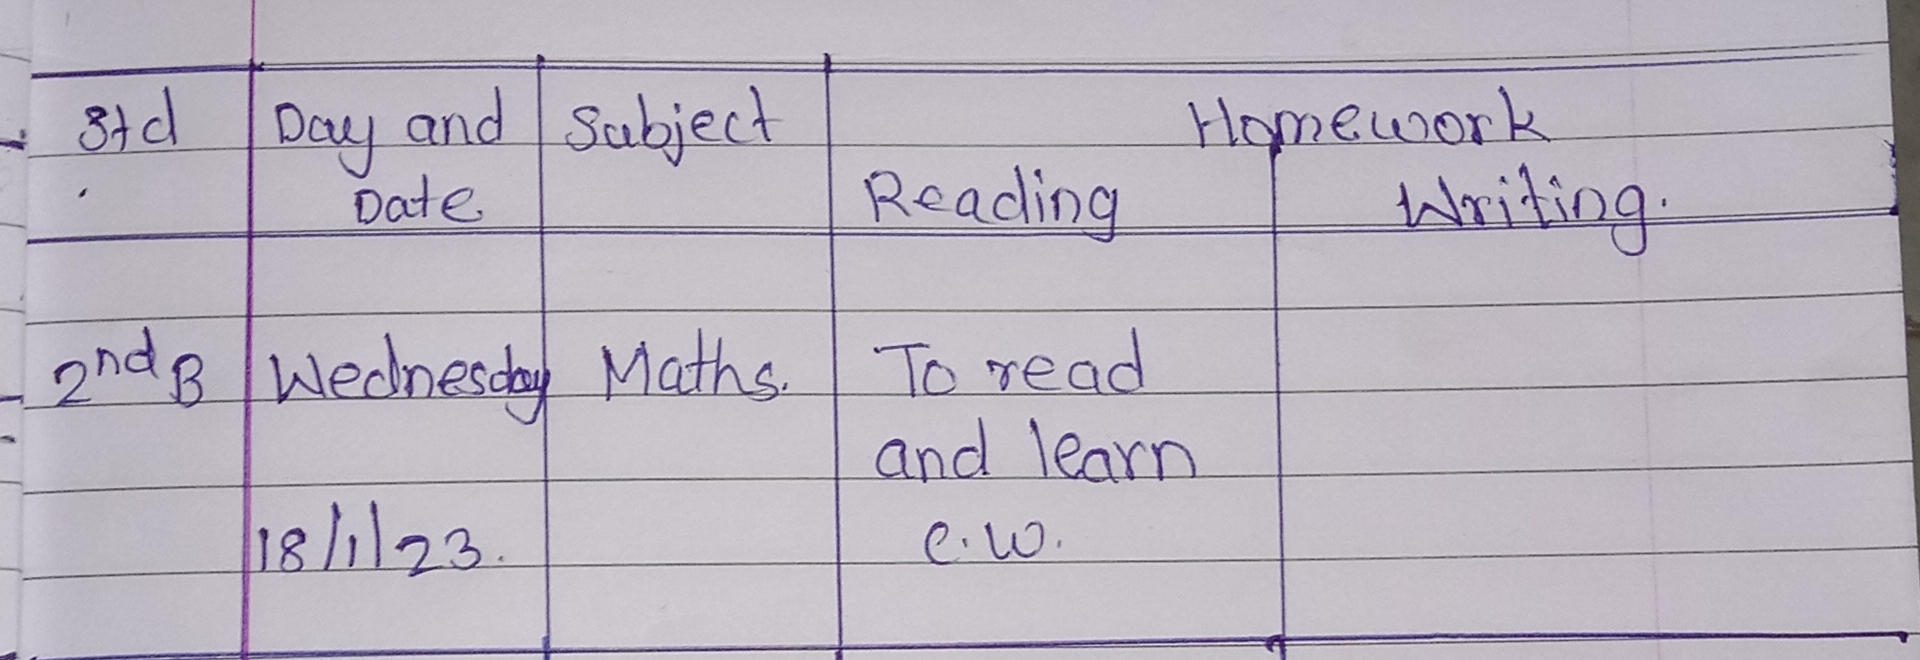 Std Day and Subject Homework
Date Reading Writing.
2nd B Wednesday Maths. To read
and learn
18/1/23. c.w.